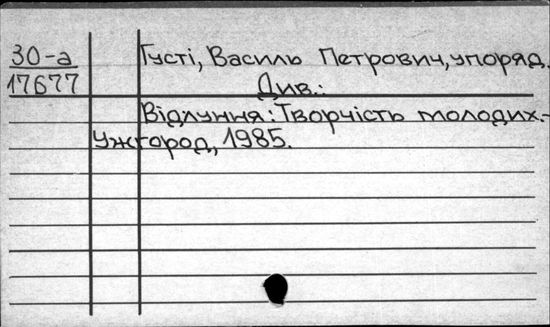 30-а
17677
Густі, Василь Петрович, упоряд.
Див.:
Відлуння: Творчість молодих.-
Ужгород, 1985.